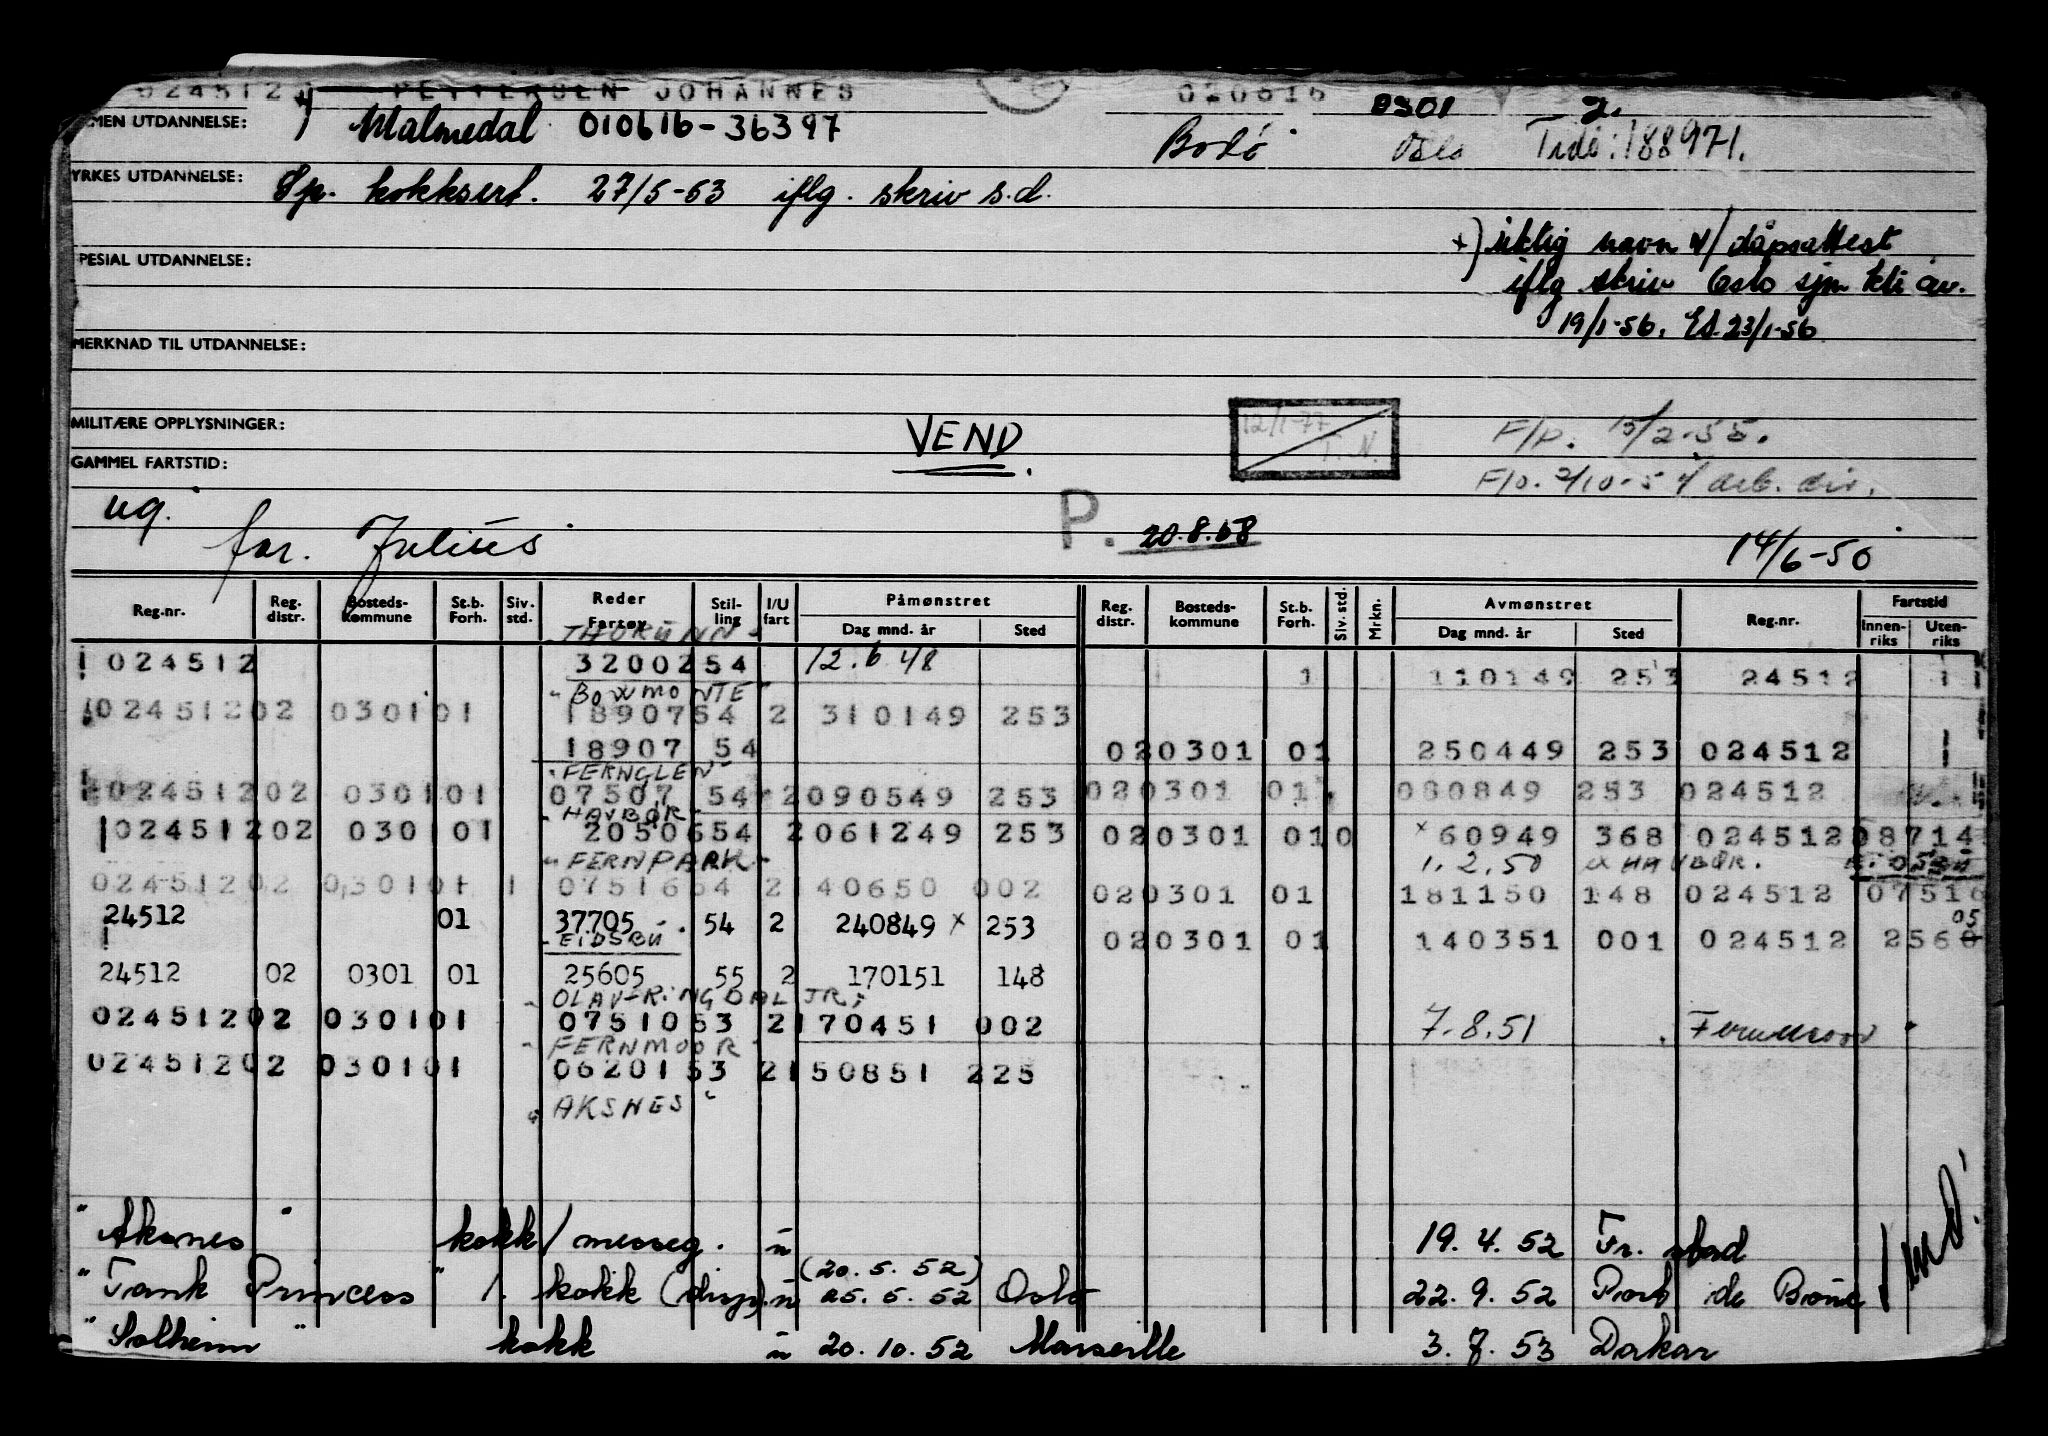 024512 PETTERSEN JOHANNES 020616 0301 2.
MEN UTDANNELSE: Malmedal 010616-36397 Bodø Oslo Tidl: 188971.
YRKES UTDANNELSE: Sp. kokksert. 27/5-63 iflg. skriv s.d.
x) riktig navn e/ dåpsattest
PESIAL UTDANNELSE: iflg skriv Oslo sjm ktr av.
19/1-56. Ed. 23/1-56
MERKNAD TIL UTDANNELSE:
MILITÆRE OPPLYSNINGER: VEND. 12/1-77 T.N. F/p. 15/2-55.
GAMMEL FARTSTID: F/p. 2/10-5 arb. dir.
ug. far. Julius P. 20.8.68 14/6-50
Reg.nr. Reg. distr. Bosteds-kommune St.b. Forh. Siv. std. Reder Fartøy Stil-ling I/U fart Påmønstret Dag mnd. år Sted Reg. distr. Bosteds-kommune St.b. Forh. Siv. std. Mrkn. Avmønstret Dag mnd. år Sted Reg.nr. Fartstid Innen-riks Uten-riks
THORUNN
024512 32002 54 12.6.48 1 110149 253 24512 1 1
"BOWMONTE"
024512 02 0301 01 18907 54 2 310149 253
18907 54 020301 01 250449 253 024512 1
"FERNGLEN"
024512 02 0301 01 07507 54 2 090549 253 020301 01 080849 253 024512
"HAVBØR"
024512 02 0301 01 20506 54 2 061249 253 020301 01 0 x 60949 368 024512 08714
"FERNPARK" 1.2.50 HAVBØR.
024512 02 0301 01 1 07516 54 2 140650 002 020301 01 181150 148 024512 07516
24512 01 37705 54 2 240849 x 253
EIDSBU 020301 01 140351 001 024512 256 05
24512 02 0301 01 25605 55 2 170151 148
OLAV RINGDAL JR;
024512 02 0301 01 07510 53 2 170451 002 7.8.51 Fernmoor
"FERNMOOR"
024512 02 0301 01 06201 53 2 150851 225
"AKSNES"
"Aksnes" kokk/messeg. u 19.4.52 Fr. stad
(20.5.52)
"Tank Princess" 1. kokk (disp). u 25.5.52 Oslo 22.9.52 Port de Bouc
"Solheim" kokk u 20.10.52 Marseille 3.7.53 Dakar